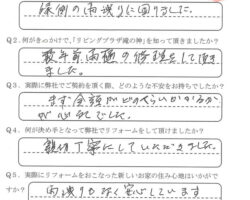 縁側の雨漏りに困りました。
Q2、何がきっかけで、「リビングプラザ滝の神」を知って頂きましたか?
数年前雨樋の修理をして頂き
ました。
Q3、実際に弊社でご契約を頂く際、どのような不安をお持ちでしたか?
まず金額がどのくらいかかるか
が心配でした。
Q4、何が決め手となって弊社でリフォームをして頂けましたか?
親切丁寧にしていただきました。
Q5、実際にリフォームをおこなった新しいお家の住み心地はいかがで
すか?
雨漏りもなく安心しています